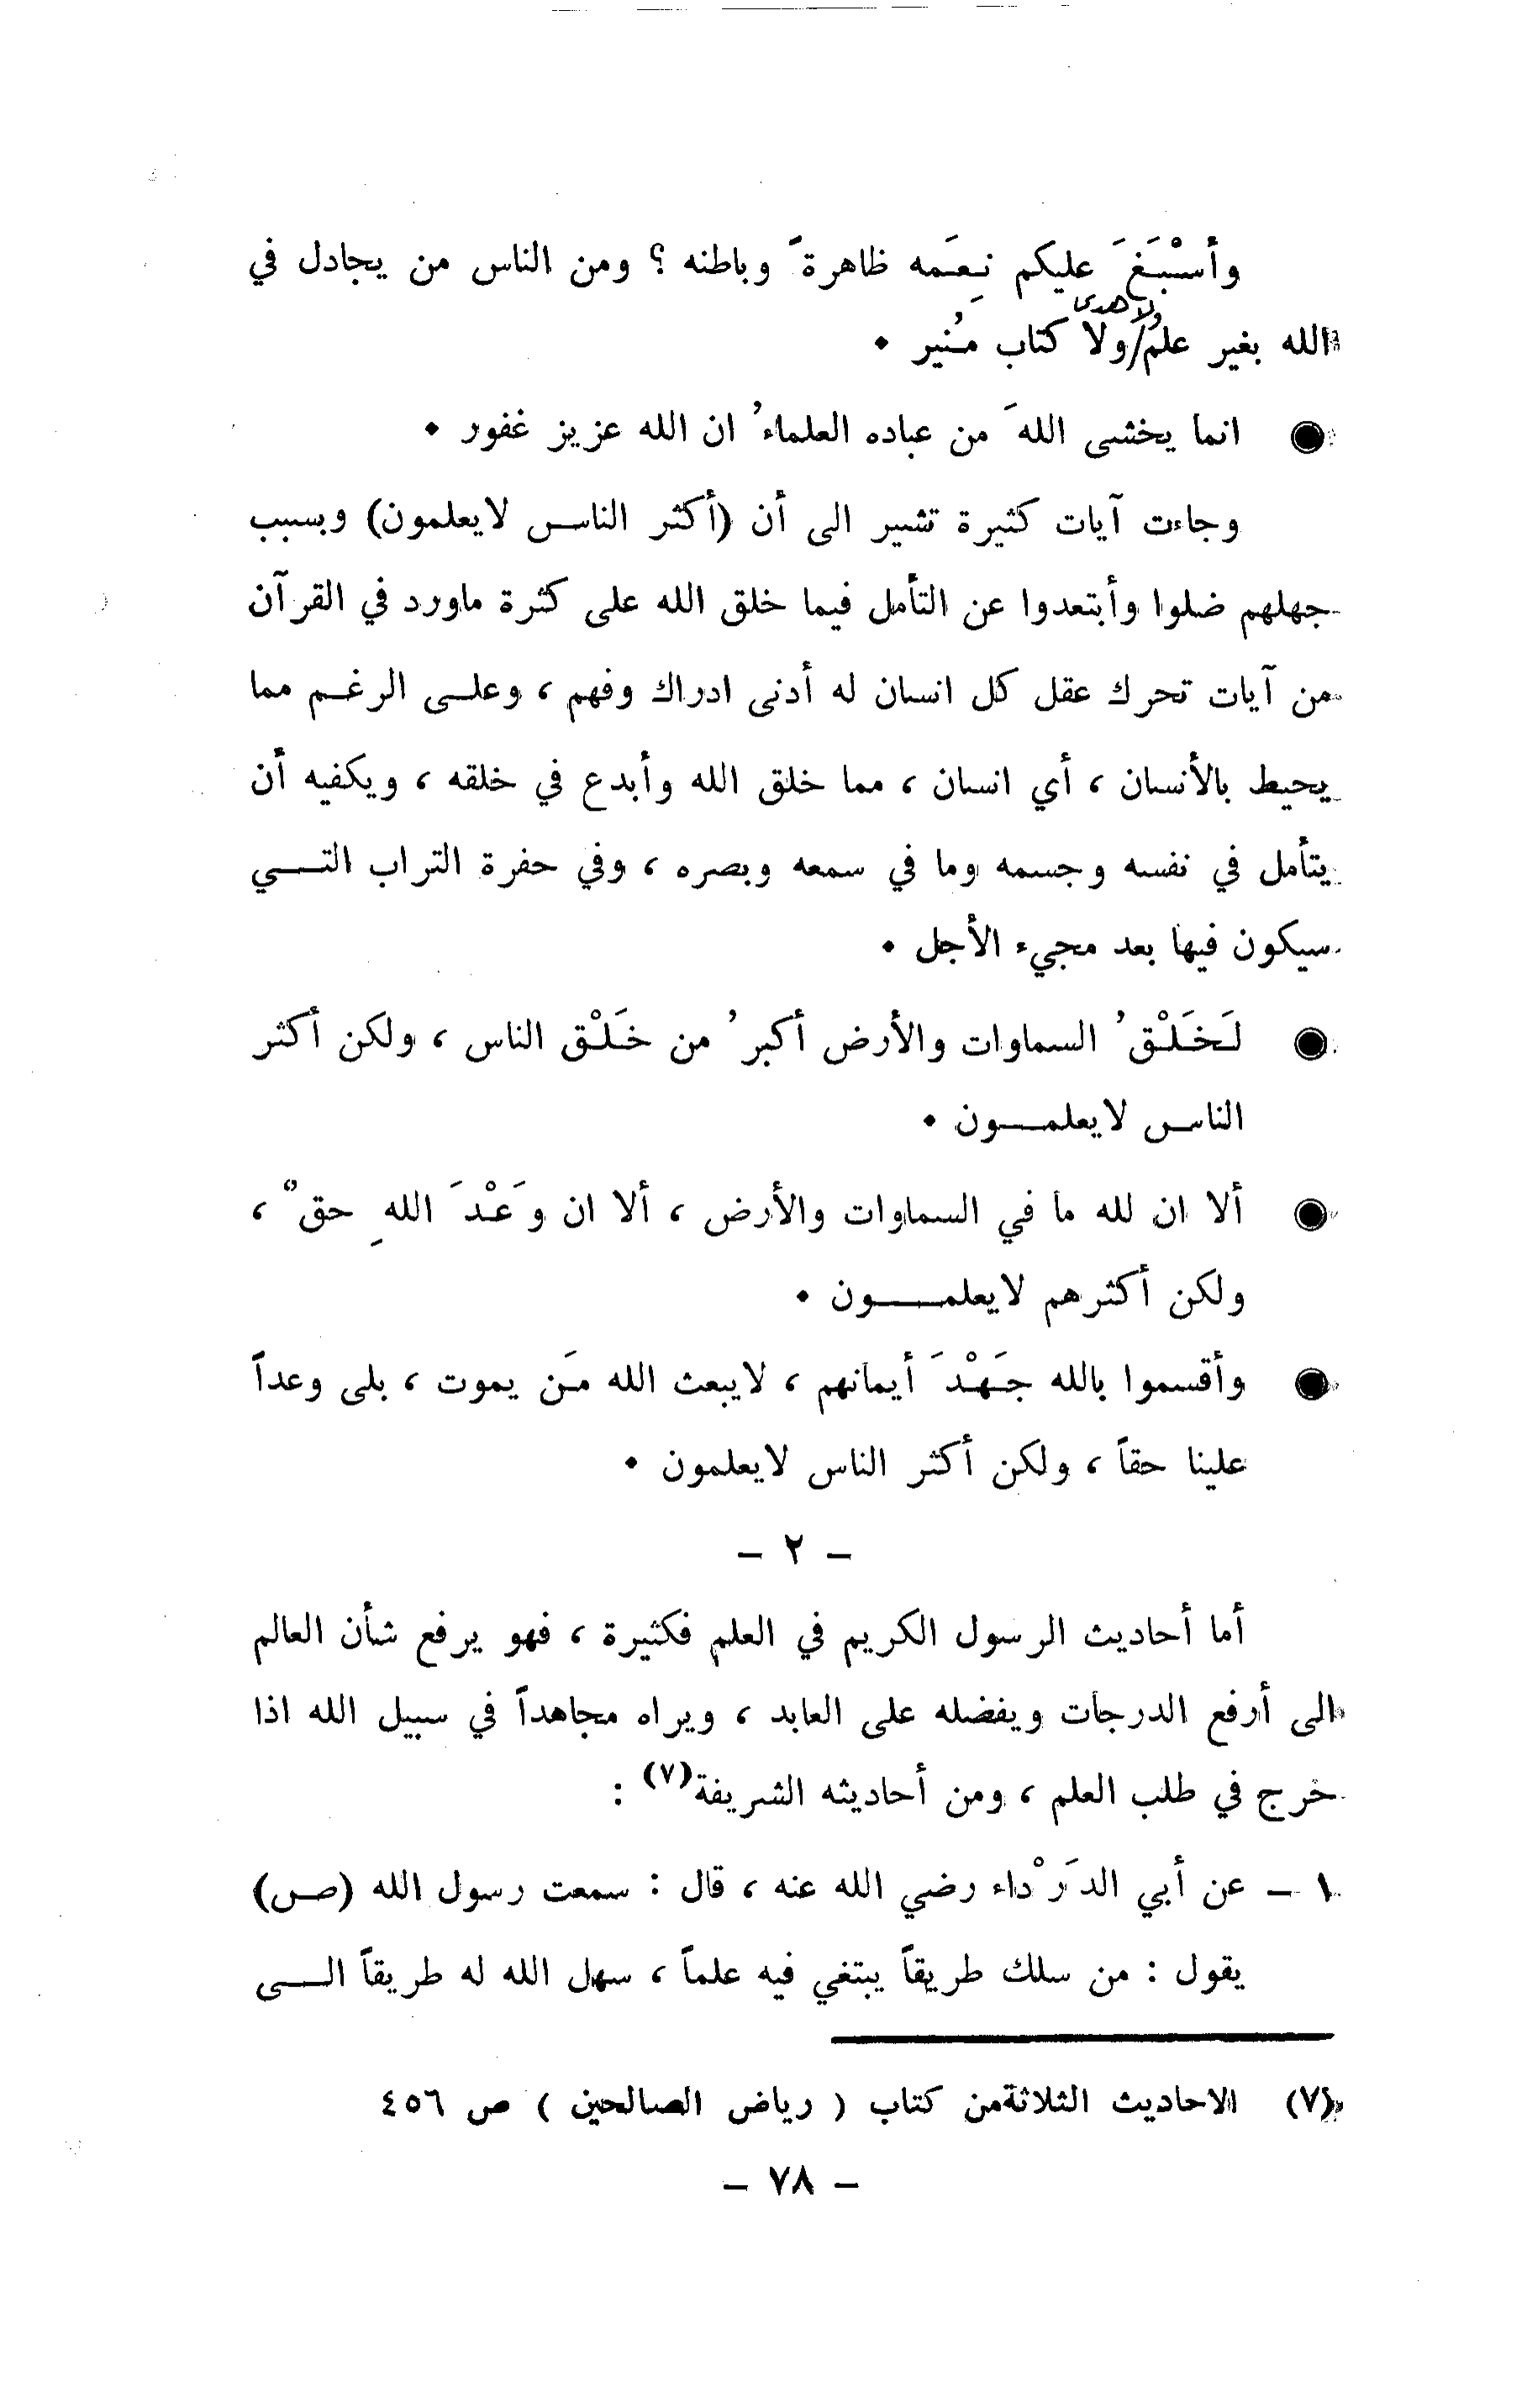 وأسْبَغَ عليكم نِعَمه ظاهرةً وباطنه ؟ ومن الناس من يجادل في
الله بغير علم/ولا كتاب مُنير .
ولا هدى
● انما يخشى اللهَ من عباده العلماءُ ان الله عزيز غفور .
وجاءت آيات كثيرة تشير الى أن (أكثر الناس لايعلمون) وبسبب
جهلهم ضلوا وأبتعدوا عن التأمل فيما خلق الله على كثرة ماورد في القرآن
من آيات تحرك عقل كل انسان له أدنى ادراك وفهم ، وعلى الرغم مما
يحيط بالأنسان ، أي انسان ، مما خلق الله وأبدع في خلقه ، ويكفيه أن
يتأمل في نفسه وجسمه وما في سمعه وبصره ، وفي حفرة التراب التي
سيكون فيها بعد مجيء الأجل .
● لَخَلْقُ السماوات والأرض أكبرُ من خَلْق الناس ، ولكن أكثر
الناس لايعلمون .
● ألا ان لله ما في السماوات والأرض ، ألا ان وَعْدَ اللهِ حقٌ ،
ولكن أكثرهم لايعلمون .
● وأقسموا بالله جَهْدَ أيمانهم ، لايبعث الله مَن يموت ، بلى وعداً
علينا حقاً ، ولكن أكثر الناس لايعلمون .
– ٢ –
أما أحاديث الرسول الكريم في العلم فكثيرة ، فهو يرفع شأن العالم
الى أرفع الدرجات ويفضله على العابد ، ويراه مجاهداً في سبيل الله اذا
خرج في طلب العلم ، ومن أحاديثه الشريفة(٧) :
١ – عن أبي الدَرْداء رضي الله عنه ، قال : سمعت رسول الله (ص)
يقول : من سلك طريقاً يبتغي فيه علماً ، سهل الله له طريقاً الى
(٧) الاحاديث الثلاثةمن كتاب ( رياض الصالحين ) ص ٤٥٦
– ٧٨ –